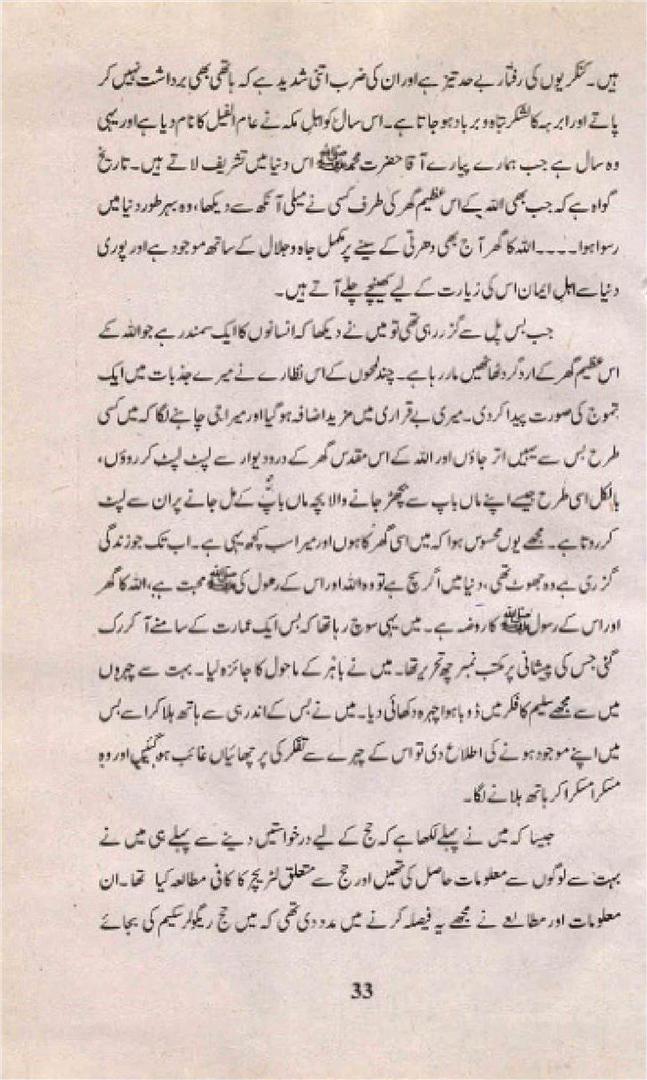 ہیں۔ کنکریوں کی رفتار بے حد تیز ہے اور ان کی ضرب اتنی شدید ہے کہ ہاتھی بھی برداشت نہیں کر
پاتے اور ابرہہ کا لشکر تباہ و برباد ہو جاتا ہے۔ اس سال کو اہل مکہ نے عام الفیل کا نام دیا ہے اور یہی
وہ سال ہے جب ہمارے پیارے آقا حضرت محمد ﷺ اس دنیا میں تشریف لاتے ہیں۔ تاریخ
گواہ ہے کہ جب بھی اللہ کے اس عظیم گھر کی طرف کسی نے میلی آنکھ سے دیکھا، وہ بہرطور دنیا میں
رسوا ہوا۔۔۔۔ اللہ کا گھر آج بھی دھرتی کے سینے پر مکمل جاہ و جلال کے ساتھ موجود ہے اور پوری
دنیا سے اہل ایمان اس کی زیارت کے لیے کھینچے چلے آتے ہیں۔
جب بس پل سے گزر رہی تھی تو میں نے دیکھا کہ انسانوں کا ایک سمندر ہے جو اللہ کے
اس عظیم گھر کے ارد گرد ٹھاٹھیں مار رہا ہے۔ چند لمحوں کے اس نظارے نے میرے جذبات میں ایک
تموج کی صورت پیدا کر دی۔ میری بے قراری میں مزید اضافہ ہو گیا اور میرا جی چاہنے لگا کہ میں کسی
طرح بس سے یہیں اتر جاؤں اور اللہ کے اس مقدس گھر کے در و دیوار سے لپٹ لپٹ کر روؤں،
بالکل اسی طرح جیسے اپنے ماں باپ سے بچھڑ جانے والا بچہ ماں باپ کے مل جانے پر ان سے لپٹ
کر روتا ہے۔ مجھے یوں محسوس ہوا کہ میں اسی گھر کا ہوں اور میرا سب کچھ یہی ہے۔ اب تک جو زندگی
گزری ہے وہ جھوٹ تھی، دنیا میں اگر سچ ہے تو وہ اللہ اور اس کے رسول کی ﷺ محبت ہے، اللہ کا گھر
اور اس کے رسول ﷺ کا روضہ ہے۔ میں یہی سوچ رہا تھا کہ بس ایک عمارت کے سامنے آ کر رک
گئی جس کی پیشانی پر مکتب نمبر چھ تحریر تھا۔ میں نے باہر کے ماحول کا جائزہ لیا۔ بہت سے چہروں
میں سے مجھے سلیم کا فکر میں ڈوبا ہوا چہرہ دکھائی دیا۔ میں نے بس کے اندر ہی سے ہاتھ ہلا کر اسے بس
میں اپنے موجود ہونے کی اطلاع دی تو اس کے چہرے سے تفکر کی پرچھائیاں غائب ہو گئیں اور وہ
مسکرا مسکرا کر ہاتھ ہلانے لگا۔
جیسا کہ میں نے پہلے لکھا ہے کہ حج کے لیے درخواستیں دینے سے پہلے ہی میں نے
بہت سے لوگوں سے معلومات حاصل کی تھیں اور حج سے متعلق لٹریچر کا کافی مطالعہ کیا تھا۔ ان
معلومات اور مطالعے نے مجھے یہ فیصلہ کرنے میں مدد دی تھی کہ میں حج ریگولر سکیم کی بجائے
33